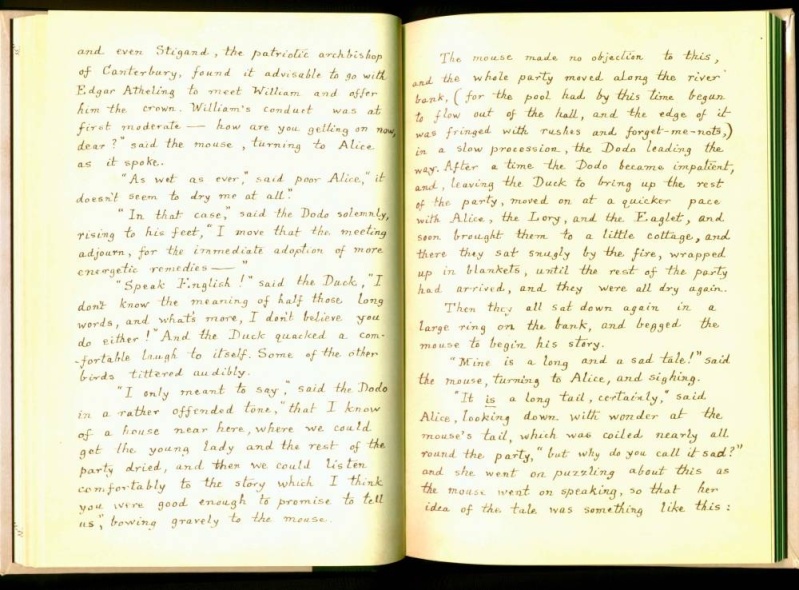 and even Stigand, the patriotic archbishop
of Canterbury, found it advisable to go with
Edgar Atheling to meet William and offer
him the crown. William's conduct was at
first moderate — how are you getting on now,
dear?" said the mouse, turning to Alice
as it spoke.
"As wet as ever," said poor Alice, "it
doesn't seem to dry me at all."
"In that case," said the Dodo solemnly,
rising to his feet, "I move that the meeting
adjourn, for the immediate adoption of more
energetic remedies — "
"Speak English!" said the Duck, "I
don't know the meaning of half those long
words, and what's more, I don't believe you
do either!" And the Duck quacked a com-
-fortable laugh to itself. Some of the other
birds tittered audibly.
"I only meant to say," said the Dodo
in a rather offended tone, "that I know
of a house near here, where we could
get the young lady and the rest of the
party dried, and then we could listen
comfortably to the story which I think
you were good enough to promise to tell
us," bowing gravely to the mouse.
The mouse made no objection to this,
and the whole party moved along the river
bank, (for the pool had by this time began
to flow out of the hall, and the edge of it
was fringed with rushes and forget-me-nots,)
in a slow procession, the Dodo leading the
way. After a time the Dodo became impatient,
and, leaving the Duck to bring up the rest
of the party, moved on at a quicker pace
with Alice, the Lory, and the Eaglet, and
soon brought them to a little cottage, and
there they sat snugly by the fire, wrapped
up in blankets, until the rest of the party
had arrived, and they were all dry again.
Then they all sat down again in a
large ring on the bank, and begged the
mouse to begin his story.
"Mine is a long and a sad tale!" said
the mouse, turning to Alice, and sighing.
"It is a long tail, certainly," said
Alice, looking down with wonder at the
mouse's tail, which was coiled nearly all
round the party, "but why do you call it sad?"
and she went on puzzling about this as
the mouse went on speaking, so that her
idea of the tale was something like this: